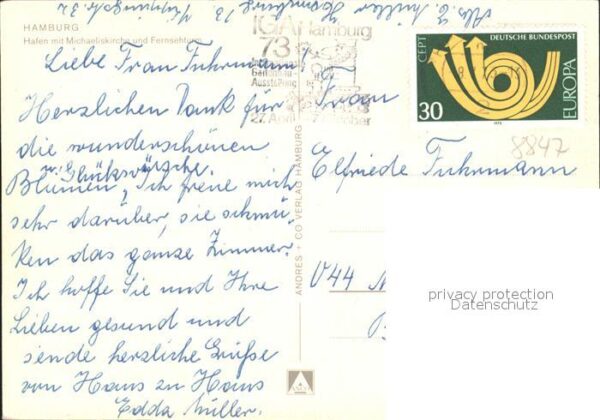 HAMBURG
Hafen mit Michaeliskirche und Fernsehturm
Liebe Frau Fuhrmann!
Herzlichen Dank für
die wunderschönen
Blumen, u. Glückwünsche. Ich freue mich
sehr darüber, sie schmük-
ken das ganze Zimmer.
Ich hoffe Sie und Ihre
Lieben gesund und
sende herzliche Grüße
von Haus zu Haus
Edda Müller.
ANDRES + CO VERLAG HAMBURG
IGA Hamburg
73
Gartenbau-
Ausstellung
27. April - 7. Oktober
CEPT
DEUTSCHE BUNDESPOST
EUROPA
30
1973
8847
Frau
Elfriede Fuhrmann
V44
privacy protection
Datenschutz